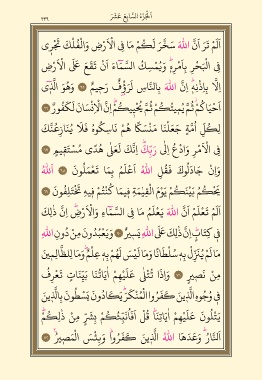 الجزء السابع عشر
٣٣٩
أَلَمْ تَرَ أَنَّ اللّٰهَ سَخَّرَ لَكُمْ مَا فِي الْاَرْضِ وَالْفُلْكَ تَجْرِي
فِي الْبَحْرِ بِاَمْرِهِ وَيُمْسِكُ السَّمَاءَ اَنْ تَقَعَ عَلَى الْاَرْضِ
اِلَّا بِاِذْنِهِ اِنَّ اللّٰهَ بِالنَّاسِ لَرَؤُفٌ رَحِيمٌ ﴿٦٥﴾ وَهُوَ الَّذِي
اَحْيَاكُمْ ثُمَّ يُمِيتُكُمْ ثُمَّ يُحْيِيكُمْ اِنَّ الْاِنْسَانَ لَكَفُورٌ ﴿٦٦﴾
لِكُلِّ اُمَّةٍ جَعَلْنَا مَنْسَكًا هُمْ نَاسِكُوهُ فَلَا يُنَازِعُنَّكَ
فِي الْاَمْرِ وَادْعُ اِلٰى رَبِّكَ اِنَّكَ لَعَلٰى هُدًى مُسْتَقِيمٍ ﴿٦٧﴾
وَاِنْ جَادَلُوكَ فَقُلِ اللّٰهُ اَعْلَمُ بِمَا تَعْمَلُونَ ﴿٦٨﴾ اَللّٰهُ
يَحْكُمُ بَيْنَكُمْ يَوْمَ الْقِيٰمَةِ فِيمَا كُنْتُمْ فِيهِ تَخْتَلِفُونَ ﴿٦٩﴾
اَلَمْ تَعْلَمْ اَنَّ اللّٰهَ يَعْلَمُ مَا فِي السَّمَاءِ وَالْاَرْضِ اِنَّ ذٰلِكَ
فِي كِتَابٍ اِنَّ ذٰلِكَ عَلَى اللّٰهِ يَسِيرٌ ﴿٧٠﴾ وَيَعْبُدُونَ مِنْ دُونِ اللّٰهِ
مَا لَمْ يُنَزِّلْ بِهِ سُلْطَانًا وَمَا لَيْسَ لَهُمْ بِهِ عِلْمٌ وَمَا لِلظَّالِمِينَ
مِنْ نَصِيرٍ ﴿٧١﴾ وَاِذَا تُتْلٰى عَلَيْهِمْ اٰيَاتُنَا بَيِّنَاتٍ تَعْرِفُ
فِي وُجُوهِ الَّذِينَ كَفَرُوا الْمُنْكَرَ يَكَادُونَ يَسْطُونَ بِالَّذِينَ
يَتْلُونَ عَلَيْهِمْ اٰيَاتِنَا قُلْ اَفَاُنَبِّئُكُمْ بِشَرٍّ مِنْ ذٰلِكُمْ
اَلنَّارُ وَعَدَهَا اللّٰهُ الَّذِينَ كَفَرُوا وَبِئْسَ الْمَصِيرُ ﴿٧٢﴾